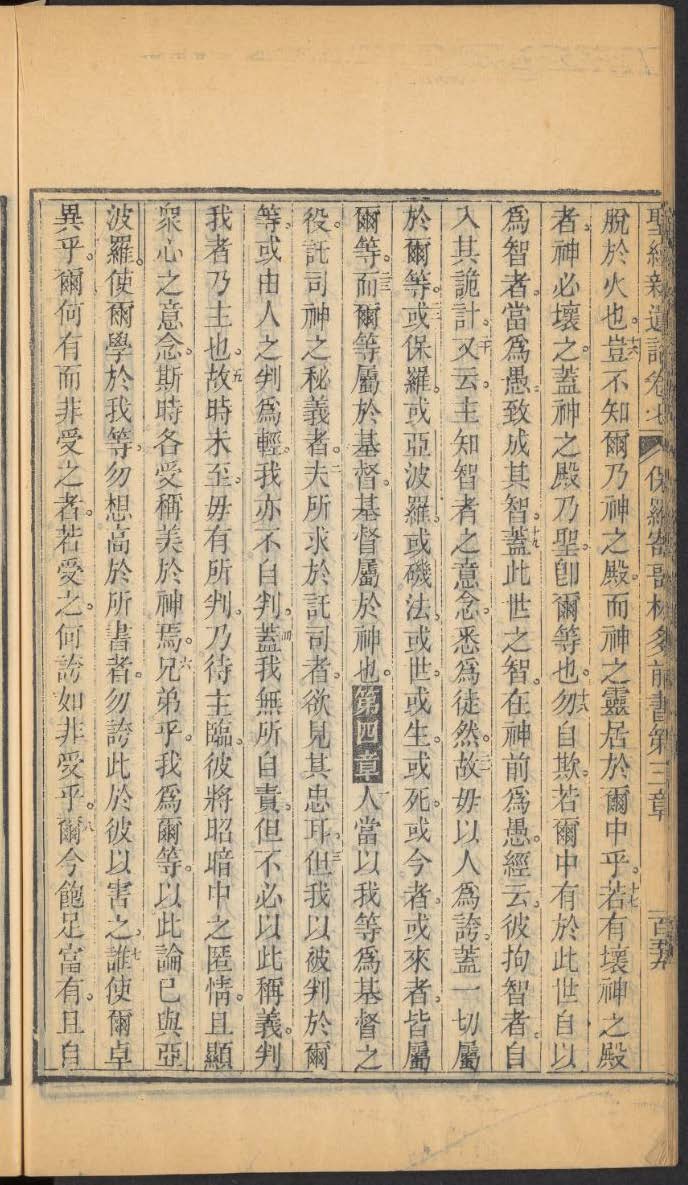 聖經新遺詔卷七 保羅寄哥林多前書第三章 百
脫於火也。十六豈不知爾乃神之殿。而神之靈居於爾中乎。十七若有壞神之殿
者。神必壞之。蓋神之殿乃聖。卽爾等也。十八勿自欺。若爾中有於此世自以
爲智者。當爲愚。致成其智。十九蓋此世之智。在神前爲愚。經云。彼拘智者。自
入其詭計。二十又云。主知智者之意念。悉爲徒然。故毋以人爲誇。蓋一切屬
於爾等。或保羅。或亞波羅。或磯法。或世。或生。或死。或今者。或來者。皆屬
爾等。而爾等屬於基督。基督屬於神也。第四章一人當以我等爲基督之
役。託司神之秘義者。二夫所求於託司者。欲見其忠耳。三但我以被判於爾
等。或由人之判爲輕。我亦不自判。四蓋我無所自責。但不必以此稱義。判
我者乃主也。五故時未至。毋有所判。乃待主臨。彼將昭暗中之匿情。且顯
衆心之意念。斯時各受稱美於神焉。六兄弟乎。我爲爾等。以此論已與亞
波羅。使爾學於我等。勿想高於所書者。勿誇此於彼以害之。七誰使爾卓
異乎。爾何有而非受之者。若受之。何誇如非受乎。八爾今飽足富有。且自